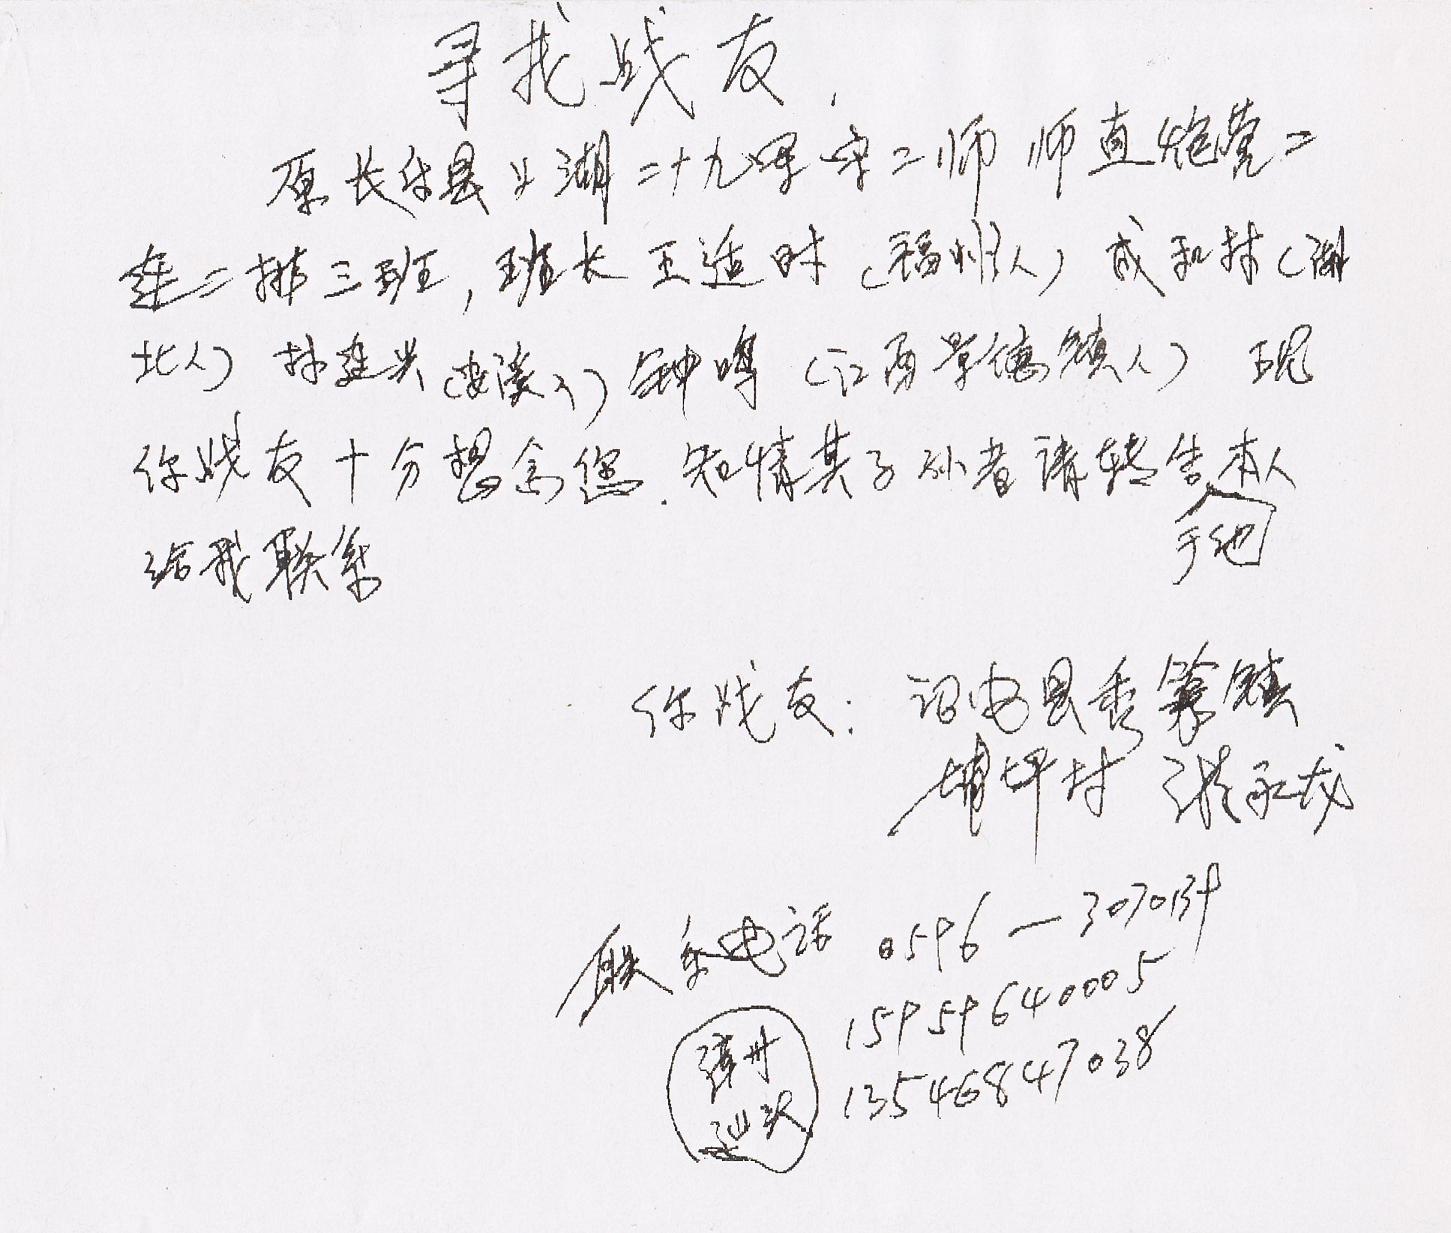 寻找战友.
原长乐县 湖二十九军 二师 师直炮营二
连二排三班,班长王适时(福州人)成和林(湖
北人)林连兴(安溪人)钟鸣(江西景德镇人)现
你战友十分想念您.知情其子孙者请转告本人
于他
给我联系
你战友:诏安县秀篆镇
埔坪村
联系电话 0596—3070139
15959640005
漳州 13546847038
汕头